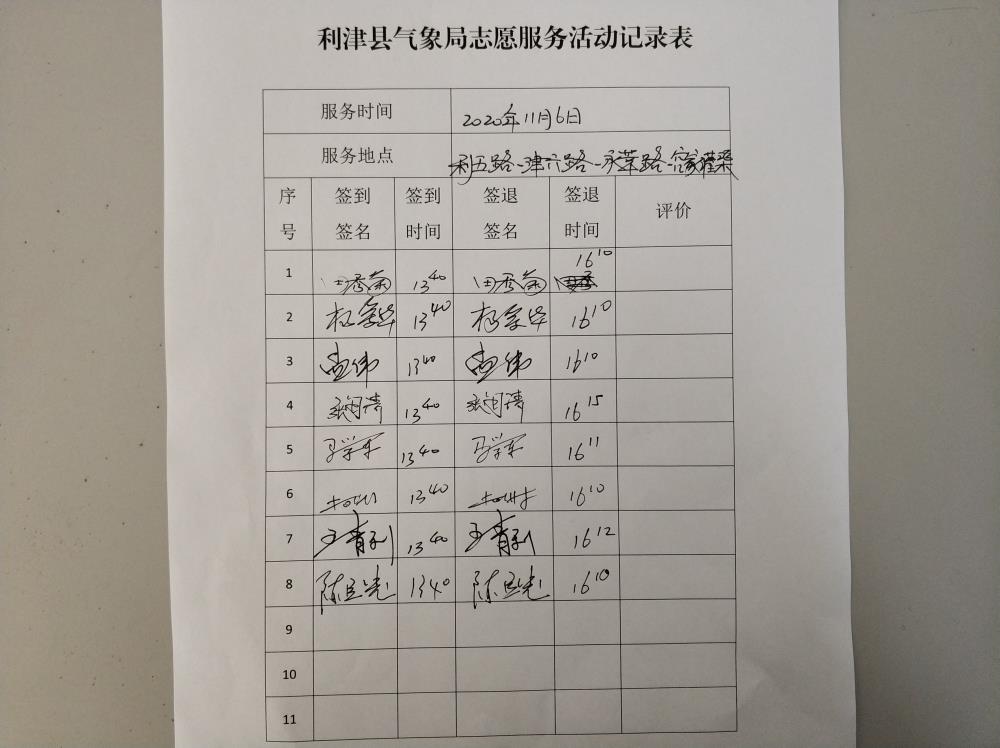 利津县气象局志愿服务活动记录表
服务时间 2020年11月6日
服务地点 利五路-津六路-永莘路
序号 签到签名 签到时间 签退签名 签退时间 评价
1 田秀菊 13 40 田秀菊 16 10
2 13 40 16 10
3 孟伟 13 40 孟伟 16 10
4 13 40 16 15
5 马学军 13 40 马学军 16 11
6 13 40 16 10
7 王青利 13 40 王青利 16 12
8 13 40 16 10
9
10
11